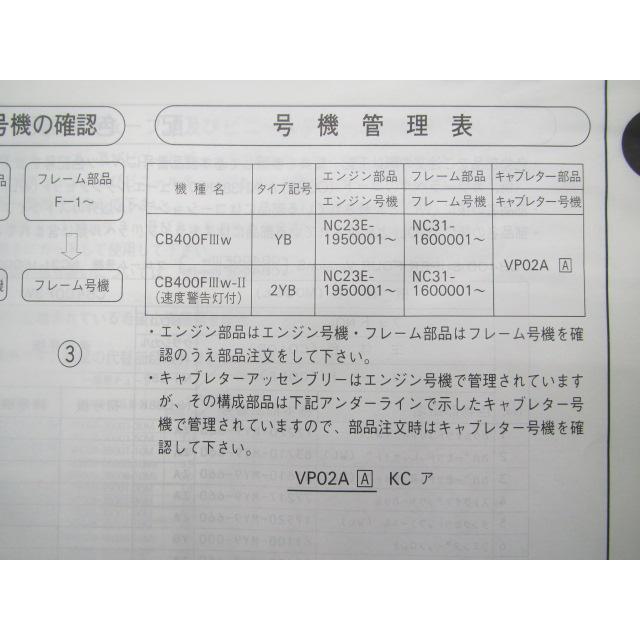 号機の確認
号機管理表
部品
フレーム部品
F-1～
フレーム号機
③
機種名
タイプ記号
エンジン部品
フレーム部品
キャブレター部品
エンジン号機
フレーム号機
キャブレター号機
CB400FⅢw
YB
NC23E-
1950001～
NC31-
1600001～
VP02A A
CB400FⅢw-II
(速度警告灯付)
2YB
NC23E-
1950001～
NC31-
1600001～
・エンジン部品はエンジン号機・フレーム部品はフレーム号機を確
認のうえ部品注文をして下さい。
・キャブレターアッセンブリーはエンジン号機で管理されています
が、その構成部品は下記アンダーラインで示したキャブレター号
機で管理されていますので、部品注文時はキャブレター号機を確
認して下さい。
VP02A A KC ア